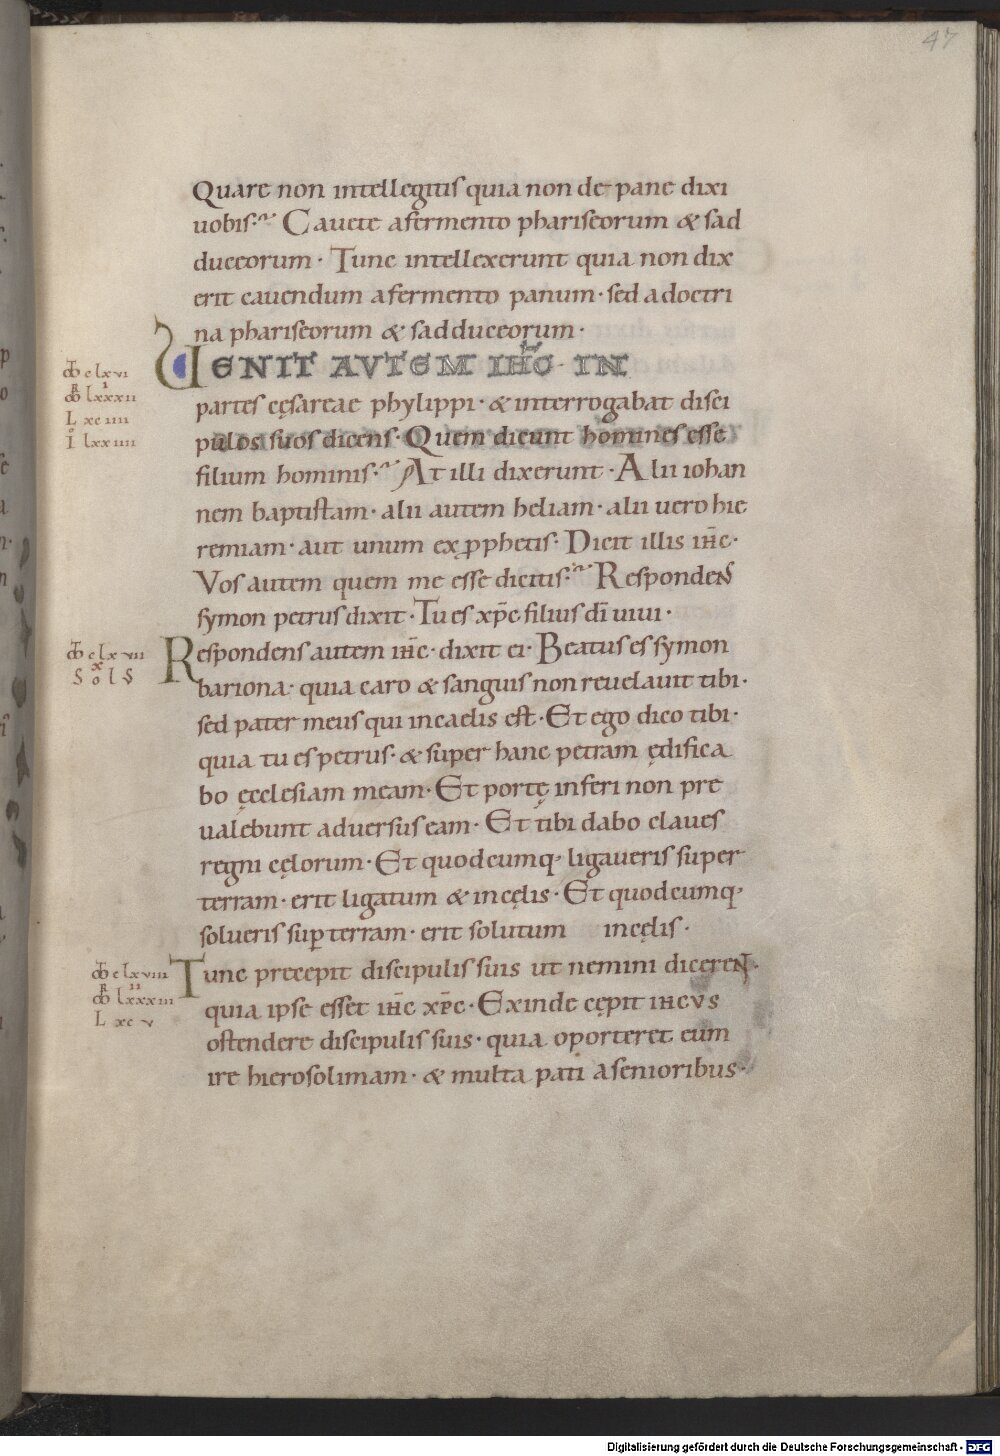 47
Quare non intellegitis quia non de pane dixi
uobis· Cauete afermento phariseorum & sad
duceorum· Tunc intellexerunt quia non dix
erit cauendum afermento panum· sed adoctri
na phariseorum & sadduceorum·
VENIT AVTEM IHC IN
cłxvi
lxxxii
L xciiii
I lxxiiii
partes cęsareae phylippi· & interrogabat disci
pulos suos dicens· Quem dicunt homines esse
filium hominis· At illi dixerunt· Alii iohan
nem baptistam· alii autem heliam· alii uero hie
remiam· aut unum ex ꝓphetis· Dicit illis ih̅c·
Vos autem quem me esse dicitis· Responden̄s
symon petrus dixit· Tu es xp̅c filius dī uiui·
Respondens autem ih̅c· dixit ei· Beatus es symon
bariona· quia caro & sanguis non reuelauit tibi·
sed pater meus qui incaelis est· Et ego dico tibi·
quia tu es petrus· & super hanc petram ędifica
bo ęcclesiam meam· Et portę inferi non pre
ualebunt aduersus eam· Et tibi dabo claues
regni cęlorum· Et quodcumq· ligaueris super
terram· erit ligatum & incęlis· Et quodcumq·
solueris suꝑ terram· erit solutum incęlis·
Tunc precepit discipulis suis ut nemini diceren̄t·
quia ipse esset ih̅c xp̅c· Exinde cępit ihcvs
ostendere discipulis suis· quia oporteret eum
ire hierosolimam· & multa pati asenioribus·
Digitalisierung gefördert durch die Deutsche Forschungsgemeinschaft - DFG